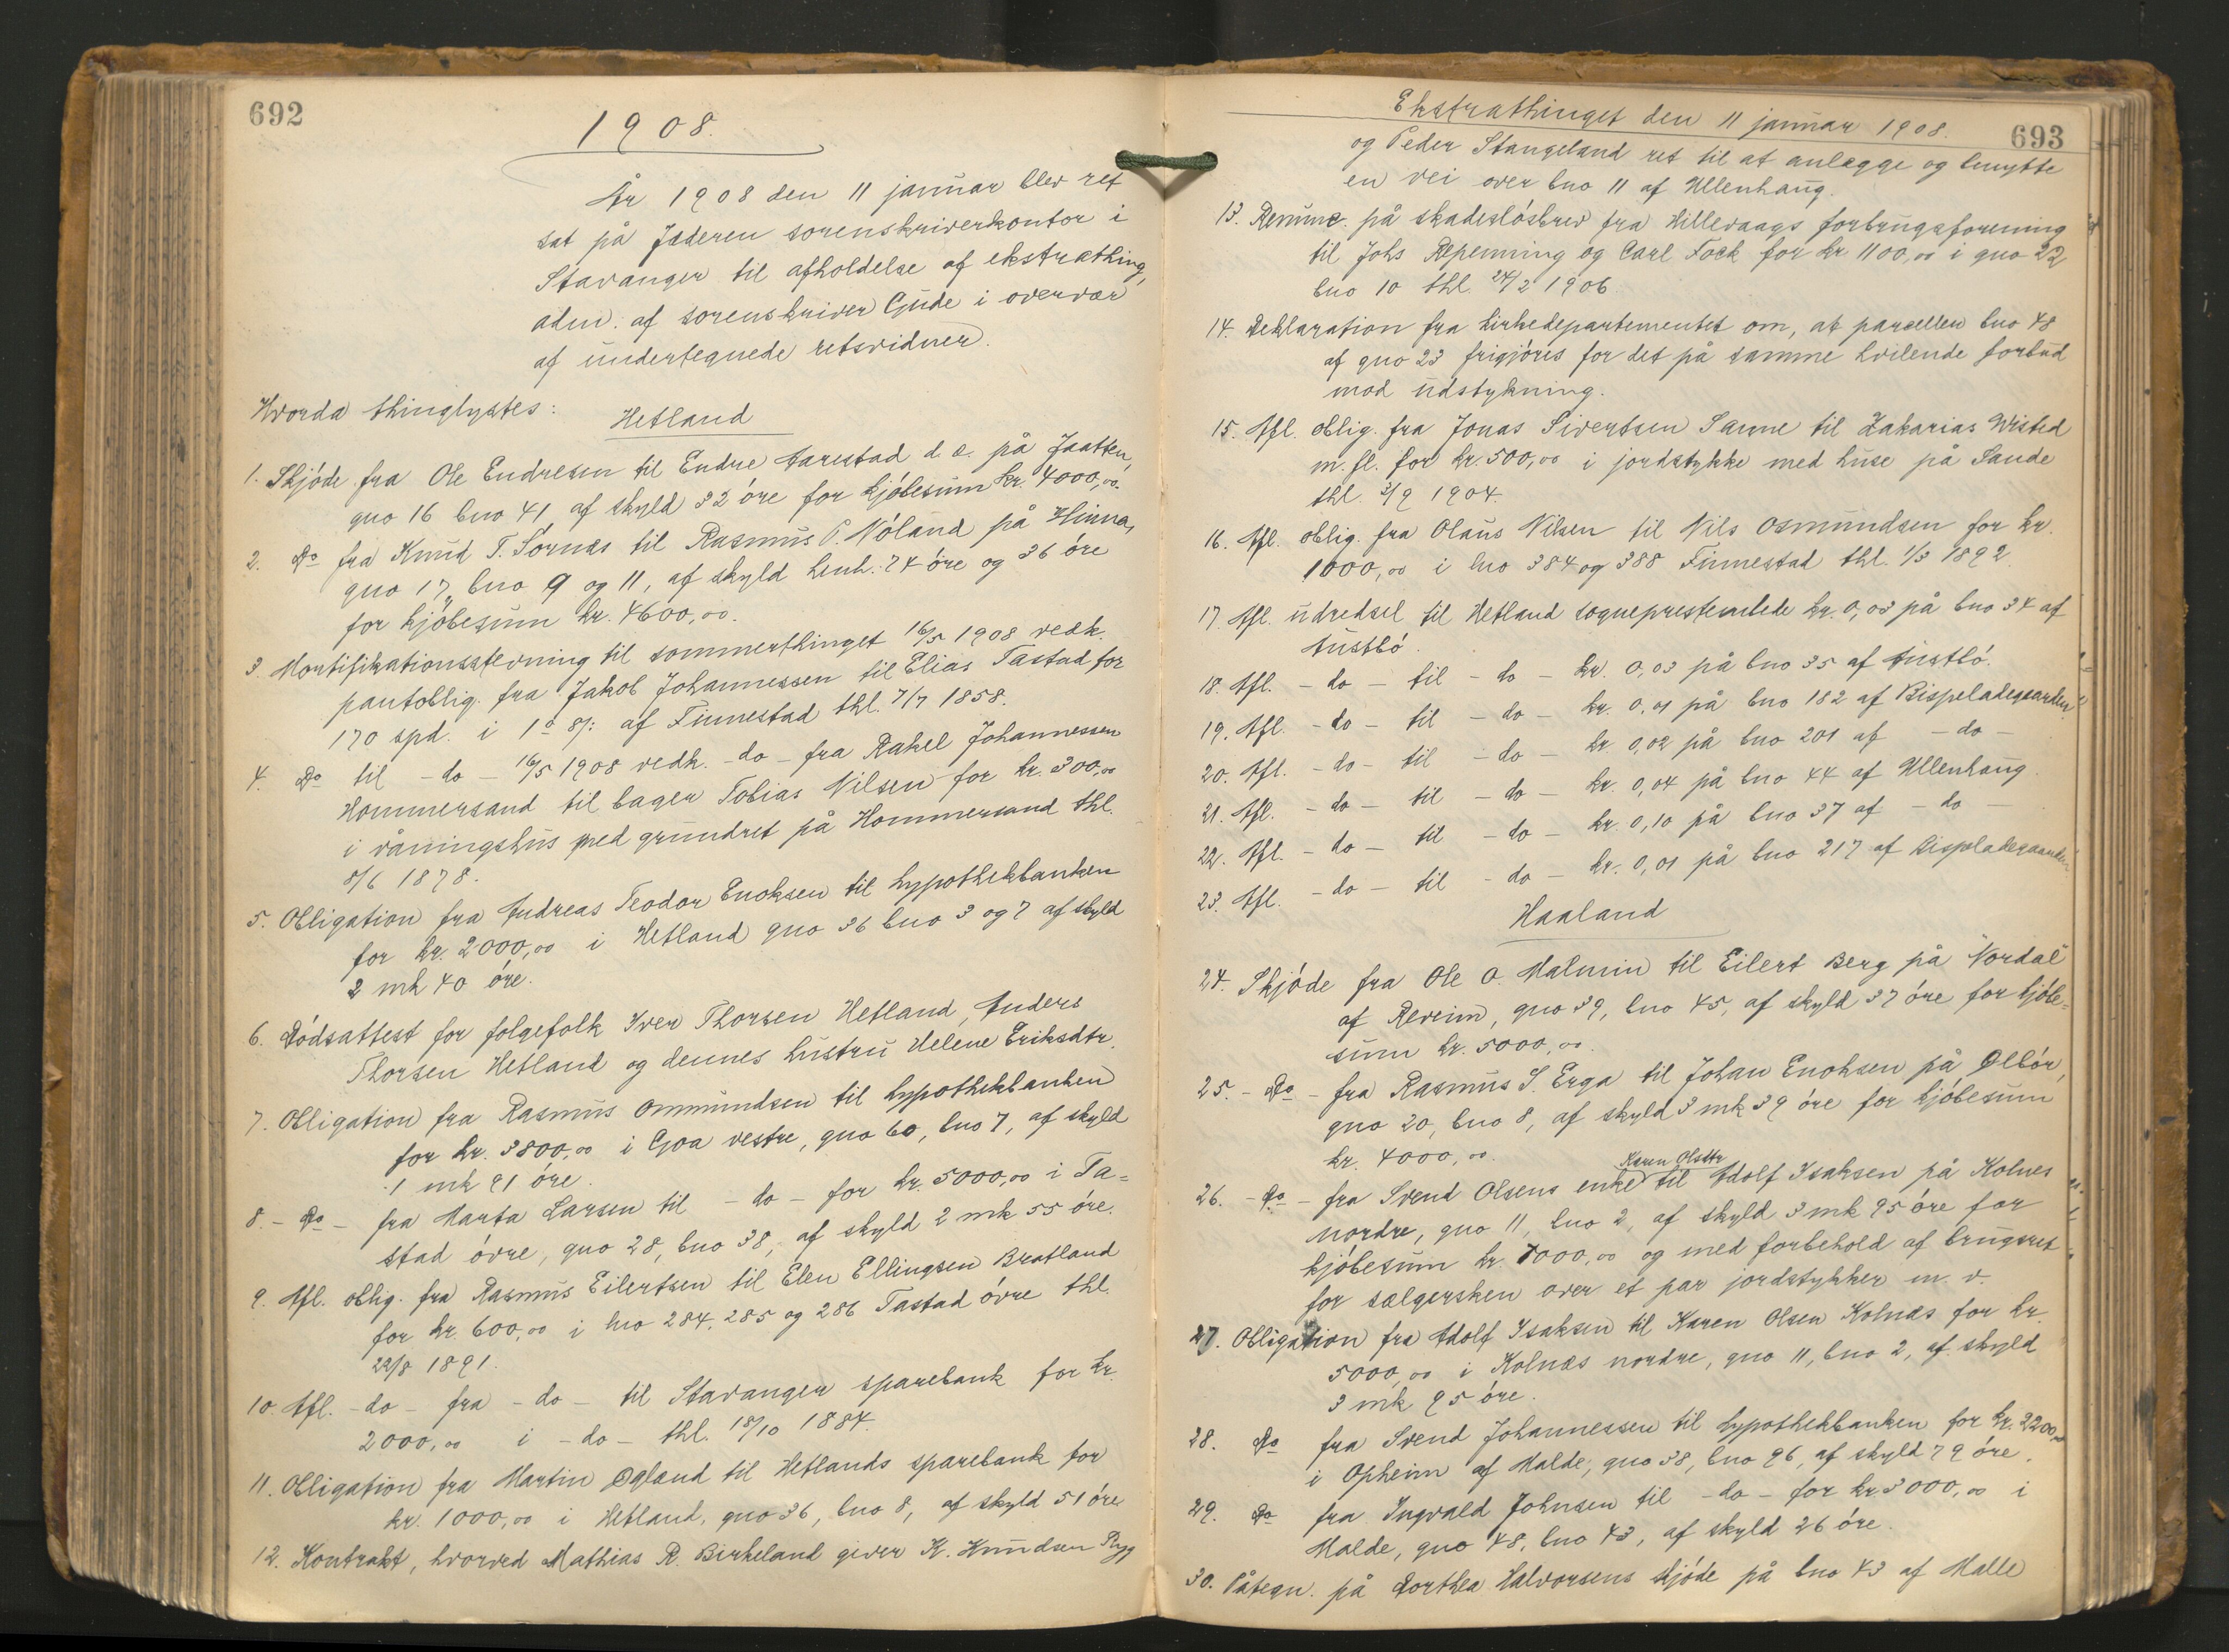 692
1908.
År 1908 den 11 januar blev ret
sat på Jæderen sorenskriverkontor i
Stavanger til afholdelse af ekstrathing,
adm. af sorenskriver Gude i overvær
af undertegnede retsvidner.
Hvorda thinglystes:
Hetland
1. Skjøde fra Ole Endresen til Endre Harestad d. e. på Jaatten,
gno 16 bno 41 af skyld 32 øre for kjøbesum kr. 4000,00.
2. Do fra Knud T. Sørnes til Rasmus P. Nøland på Hinna,
gno 17, bno 9 og 11, af skyld henh. 74 øre og 36 øre
for kjøbesum kr. 4600,00.
3. Mortifikationsstevning til sommerthinget 16/5 1908 vedk.
pantoblig. fra Jakob Johannessen til Elias Tastad for
170 spd. i 1a 8/: af Finnestad thl. 7/7 1858.
4. Do til - do - 16/5 1908 vedk. - do - fra Rakel Johannessen
Hommersand til bager Tobias Nilsen for kr. 300,00
i våningshus med grundret på Hommersand thl.
8/6 1878.
5. Obligation fra Andreas Teodor Enoksen til hypothekbanken
for kr. 2000,00 i Hetland gno 36 bno 3 og 7 af skyld
2 mk 40 øre.
6. Dødsattest for folgefolk Iver Thorsen Hetland, Anders
Thorsen Hetland og dennes hustru Helene Eriksdtr.
7. Obligation fra Rasmus Ommundsen til hypothekbanken
for kr. 3800,00 i Goa vestre, gno 60, bno 7, af skyld
1 mk 91 øre.
8. - Do - fra Marta Larsen til - do - for kr. 5000,00 i Ta=
stad øvre, gno 28, bno 38, af skyld 2 mk 55 øre.
9. Afl. oblig. fra Rasmus Eilertsen til Elen Ellingsen Bratland
for kr. 600,00 i lno 284, 285 og 286 Tastad øvre thl.
22/8 1891.
10. Afl. - do - fra - do - til Stavanger sparebank for kr.
2000,00 i - do - thl. 18/10 1884.
11. Obligation fra Martin Øgland til Hetlands sparebank for
kr. 1000,00 i Hetland, gno 36, bno 8, af skyld 51 øre
12. Kontrakt, hvorved Mathias R. Birkeland giver K. Knudsen Rygg
Ekstrathinget den 11 januar 1908.
693
og Peder Stangeland ret til at anlægge og benytte
en vei over bno 11 af Ullenhaug.
13. Renunc. på skadesløsbrev fra Hillevaags forbrugsforening
til Johs Repenning og Carl Fock for kr 1100,00 i gno 22
bno 10 thl. 24/2 1906.
14. Deklaration fra kirkedepartementet om, at parcellen bno 48
af gno 23 frigjøres for det på samme hvilende forbud
mod udstykning.
15. Afl. oblig. fra Jonas Sivertsen Sanne til Zakarias Wisted
m. fl. for kr. 500,00 i jordstykke med huse på Sande
thl. 3/9 1904.
16. Afl. oblig. fra Olaus Nilsen til Nils Osmundsen for kr.
1000,00 i lno 384 og 388 Finnestad thl. 1/3 1892.
17. Afl. udredsel til Hetland sogneprestembede kr. 0,03 på bno 34 af
Austbø.
18. Afl. - do - til - do - kr. 0,03 på bno 35 af Austbø.
19. Afl. - do - til - do - kr. 0,01 på bno 182 af Bispeladegaarden
20. Afl. - do - til - do - kr. 0,02 på bno 201 af - do -
21. Afl. - do - til - do - kr. 0,04 på bno 44 af Ullenhaug.
22. Afl. - do - til - do - kr. 0,10 på bno 37 af - do -
23. Afl. - do - til - do - kr. 0,01 på bno 217 af Bispeladegaarden
Haaland
24. Skjøde fra Ole O. Malmin til Eilert Berg på "Nordal"
af Reveim, gno 39, bno 45, af skyld 37 øre for kjøbe=
sum kr. 5000,00.
25. - Do - fra Rasmus S. Erga til Johan Enoksen på Ølbør,
gno 20, bno 8, af skyld 3 mk 39 øre for kjøbesum
kr. 4000,00.
Karen Olsdtr
26. - Do - fra Svend Olsens enke til Adolf Isaksen på Kolnes
nordre, gno 11, bno 2, af skyld 3 mk 95 øre for
kjøbesum kr. 7000,00 og med forbehold af brugsret
for sælgersken over et par jordstykker m. v.
27. Obligation fra Adolf Isaksen til Karen Olsen Kolnæs for kr.
5000,00 i Kolnæs nordre, gno 11, bno 2, af skyld
3 mk 95 øre.
28. Do fra Svend Johannessen til hypothekbanken for kr. 2200,00
i Opheim af Malde, gno 38, bno 96, af skyld 79 øre.
29. Do fra Ingvald Johnsen til - do - for kr 3000,00 i
Malde, gno 48, bno 43, af skyld 26 øre.
30. Påtegn. på Dorthea Halvorsens skjøde på bno 43 af Malle